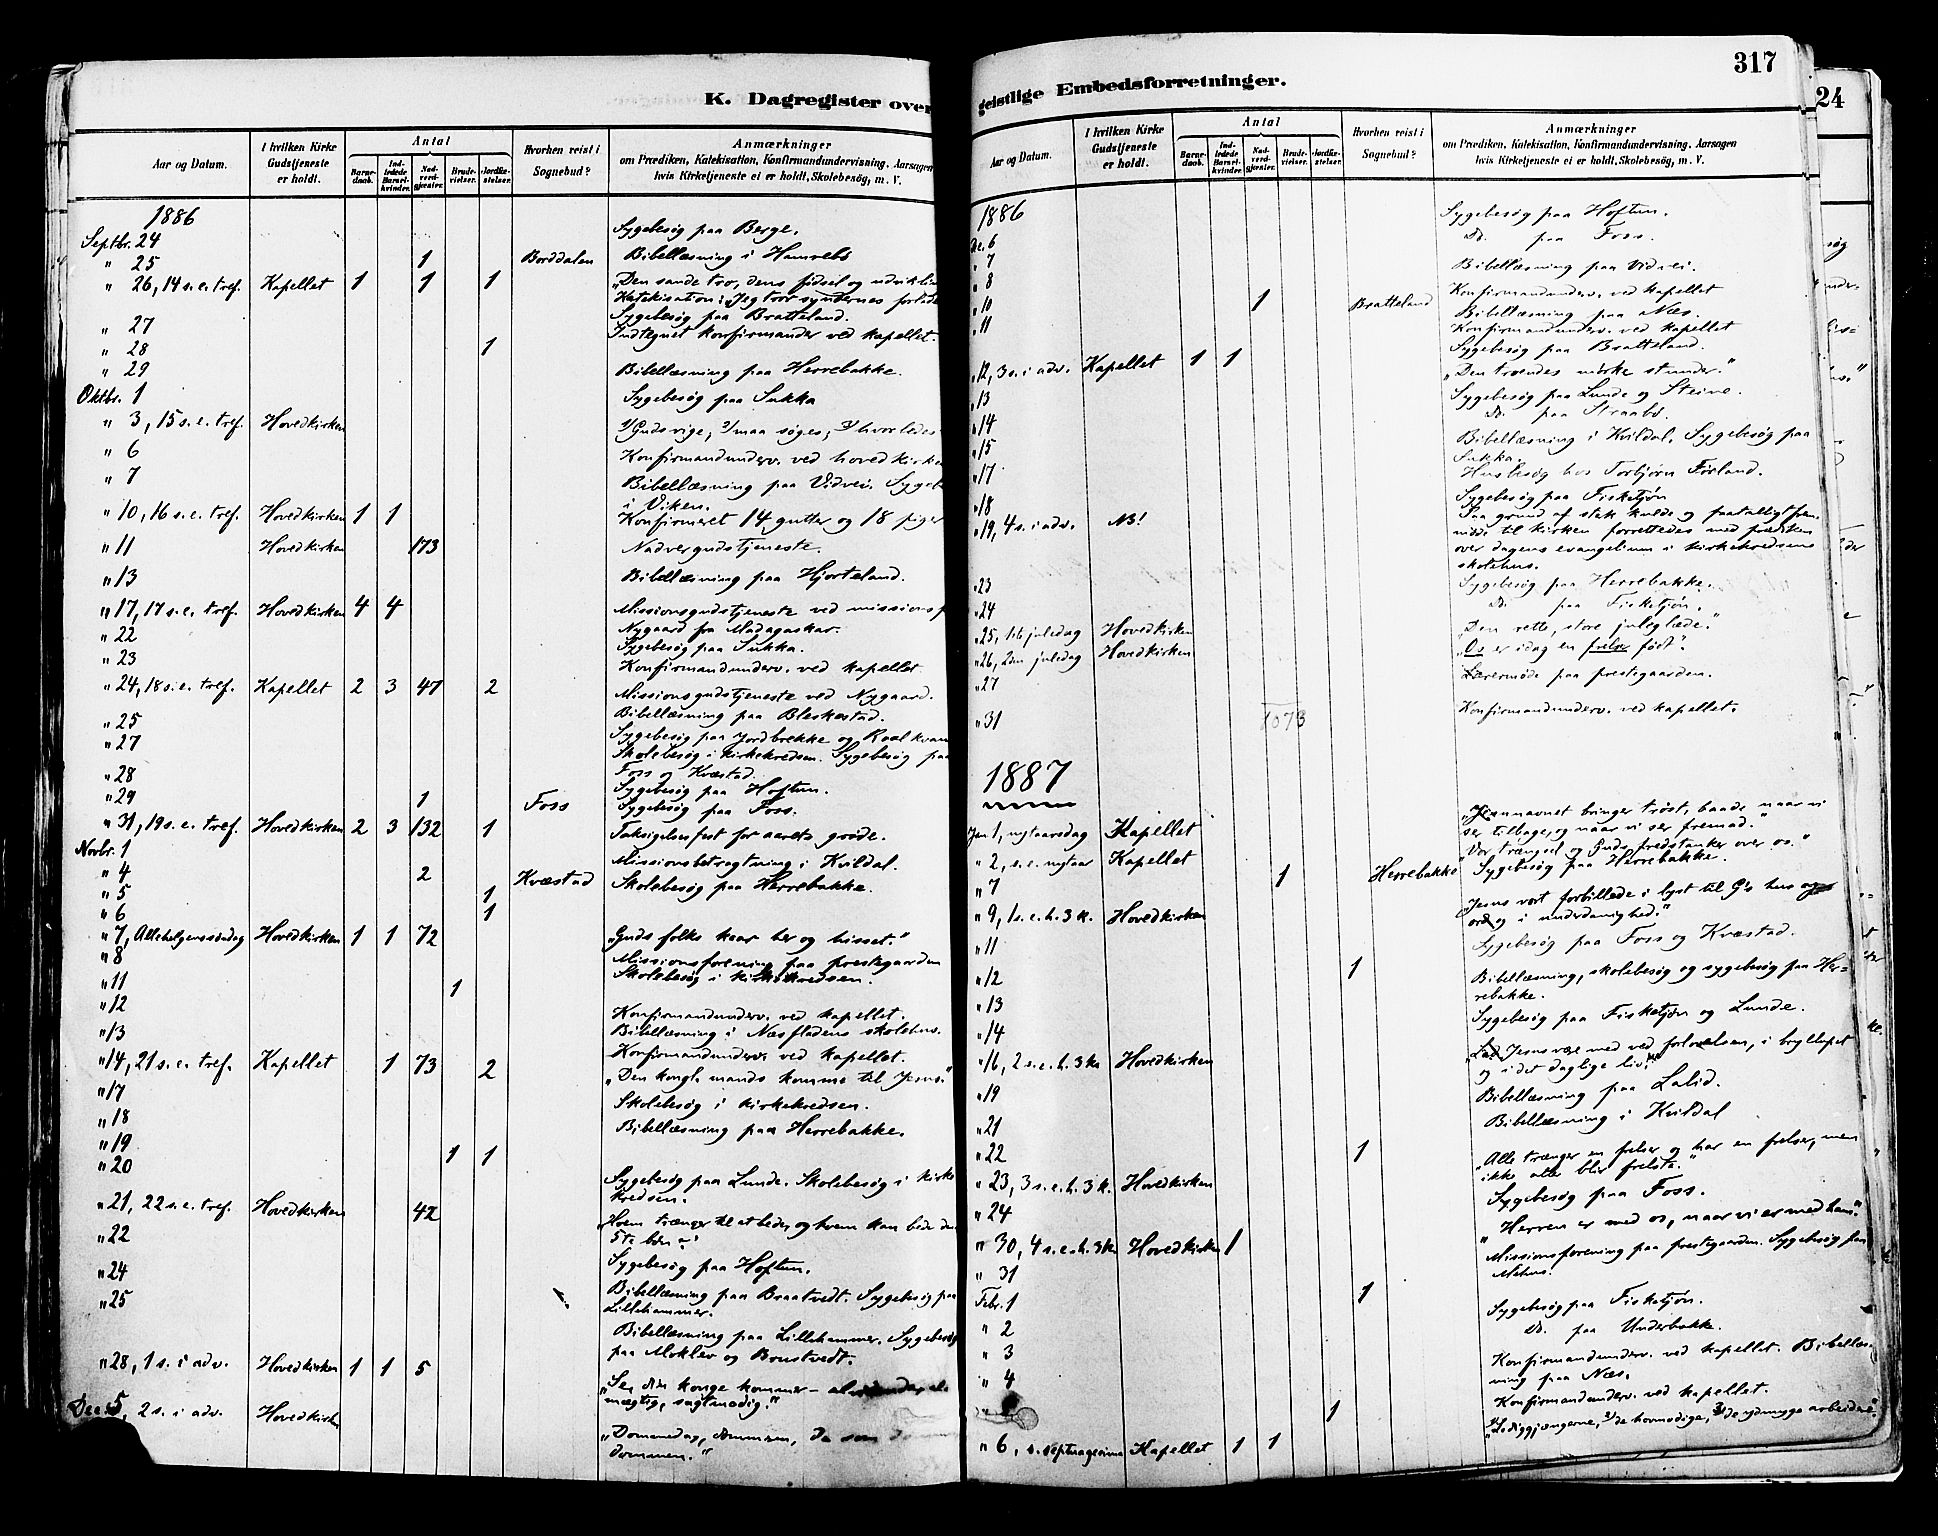 K. Dagregister over
Aar og Datum. I hvilken Kirke Gudstjeneste er holdt. Antal Barnedaab. Indledede Barselkvinder. Nadverdgjester. Brudevielser. Jordfæstelser. Hvorhen reist i Sognebud? Anmærkninger om Prædiken, Katekisation, Konfirmandundervisning, Aarsagen hvis Kirketjeneste ei er holdt, Skolebesög, m. V.
1886
Septbr. 24 Sygebesög paa Berge.
" 25 1 Borddalen Bibellæsning i
" 26, 14 s.e. tref. Kapellet 1 1 1 "Den sande tro, dens födsel og
Katekisation: "Jeg tror syndernes
" 27 Sygebesög paa Bratteland.
" 28 1 Indtegnet konfirmander ved kapellet.
" 29 Bibellæsning paa Herrebakke.
Oktbr. 1 Sygebesög paa Sukka
" 3, 15 s.e. tref. Hovedkirken 1/ Guds rige, 2/ maa söges, 3/ hvorledes
" 6 Konfirmandunderv. ved hovedkirken
" 7 Bibellæsning paa Vidvei.
i Viken.
" 10, 16 s.e. tref. Hovedkirken 1 1 Konfirmeret 14 gutter og 18 piger
" 11 Hovedkirken 173 Nadvergudstjeneste.
" 13 Bibellæsning paa Hjorteland.
" 17, 17 s.e. tref. Hovedkirken 4 4 Missionsgudstjeneste ved
" 22 Nygaard fra Madagaskar.
" 23 Sygebesög paa Sukka.
Konfirmandunderv. ved kapellet
" 24, 18 s.e. tref. Kapellet 2 3 47 2 Missionsgudstjeneste ved Nygaard.
" 25 Bibellæsning paa Bleskestad.
" 27 Sygebesög paa Jordbrekke og
Skolebesög i kirkekredsen. Sygebesög paa
" 28 Foss og Kvæstad.
" 29 1 Foss Sygebesög paa Hoftun.
Sygebesög paa Foss.
" 31, 19 s.e. tref. Hovedkirken 2 3 132 1 Taksigelsesfest for aarets gröde.
Novbr. 1 Missionsbetragtning i Kvildal.
" 4 2 Kvæstad Skolebesög paa Herrebakke.
" 5 1
" 6 1
" 7, Allehelgenssöndag Hovedkirken 1 1 72 "Guds folks kaar her og hisset."
" 8 Missionsforening paa prestegaarden
" 11 1 Skolebesög i kirkekredsen.
" 12 Konfirmandunderv. ved kapellet.
" 13 Bibellæsning i Næsfladens skolehus.
" 14, 21 s.e. tref. Kapellet 1 73 2 Konfirmandunderv. ved kapellet.
" 17 "Den kongl. mands komme til Jesus."
" 18 Skolebesög i kirkekredsen.
" 19 Bibellæsning paa Herrebakke.
" 20 1 1
Sygebesög paa Lunde. Skolebesög i
kredsen.
" 21, 22 s.e. tref. Hovedkirken 42 "Hvem trænger til at bede, og hvem kan bede
" 22 5te bön?"
" 24 Sygebesög paa Hoftun.
" 25 Bibellæsning paa Braatvedt. Sygebesög paa
Lillehammer.
Bibellæsning paa Lillehammer. Sygebesög
paa Moklev og Brustvedt.
" 28, 1 s. i adv. Hovedkirken 1 1 5 "Se din konge kommer –
mægtig, sagtmodig."
Dec. 5, 2 s. i adv. Hovedkirken "Domme dag,
dommen."
geistlige Embedsforretninger. 317
Aar og Datum. I hvilken Kirke Gudstjeneste er holdt. Antal Barnedaab. Indledede Barselkvinder. Nadverdgjester. Brudevielser. Jordfæstelser. Hvorhen reist i Sognebud? Anmærkninger om Prædiken, Katekisation, Konfirmandundervisning, Aarsagen hvis Kirketjeneste ei er holdt, Skolebesög, m. V.
1886 Sygebesög paa Hoftun.
De. 6 Do. paa Foss.
" 7 Bibellæsning paa Vidvei.
" 8 Konfirmandunderv. ved kapellet
" 10 1 Bratteland Bibellæsning paa Næs.
" 11 Konfirmandunderv. ved kapellet
Sygebesög paa Bratteland.
" 12, 3 s. i adv. Kapellet 1 1 "Den troendes mörke stunder."
" 13 Sygebesög paa Lunde og Steine.
" 14 Do. paa Straabö.
" 15 Bibellæsning i Kvildal. Sygebesög paa
Sukka.
" 17 Husbesög hos Torbjörn Förland.
" 18 Sygebesög paa Fisketjön
" 19, 4 s. i adv. NB! Paa grund af stærk kulde og faatalligt frem
möde til kirken forrettedes med prædiken
over dagens evangelium i kirkekredsens
skolehus.
" 23 Sygebesög paa Herrebakke.
" 24 Do. paa Fisketjön.
" 25, 1ste juledag Hovedkirken "Den rette, store juleglæde."
" 26, 2den juledag Hovedkirken "Os er idag en frelser födt".
" 27 Lærermöde paa prestegaarden.
" 31 1073 Konfirmandunderv. ved kapellet.
1887
Jan. 1, nytaarsdag Kapellet "Jesunavnet bringer tröst, baade naar vi
ser tilbage, og naar vi ser fremad."
" 2, s.e. nytaar Kapellet "Vor trængsel og Guds fredstanker over os."
" 7 1 Herrebakke Sygebesög paa Herrebakke.
" 9, 1 s.e.h. 3 k. Hovedkirken "Jesus vort forbillede i lyst til G's hus og
ord og i underdanighed."
" 11 Sygebesög paa Foss og Kvæstad.
" 12 1 Bibellæsning, skolebesög og sygebesög paa Her-
rebakke.
" 13
" 14 Sygebesög paa Fisketjön og Lunde.
" 16, 2 s.e.h. 3 k. Hovedkirken "Lad Jesus være med ved forlovelsen, i bryllupet
og i det daglige liv."
" 19 Bibellæsning paa Lalid.
" 21 Bibellæsning i Kvildal
" 22 1
" 23, 3 s.e.h. 3 k. Hovedkirken "Alle trænger en frelser og har en frelser, men
ikke alle blir frelste."
" 24 Sygebesög paa Foss.
" 30, 4 s.e.h. 3 k. Hovedkirken 1 "Herren er med os, naar vi er med ham."
" 31 Missionsforening paa prestegaarden. Sygebesög paa
Mehus.
Febr. 1 1 Sygebesög paa Fisketjön.
" 2 Do. paa Underbakke.
" 3 Konfirmandunderv. ved kapellet. Bibellæs-
ning paa Næs.
" 4 Konfirmandunderv. ved kapellet.
1
" 6, s. septuagesima Kapellet 1 1 "1/ Lediggjængerne, 2/ de hovmodige, 3/ de ydmyge arbeidere."
24